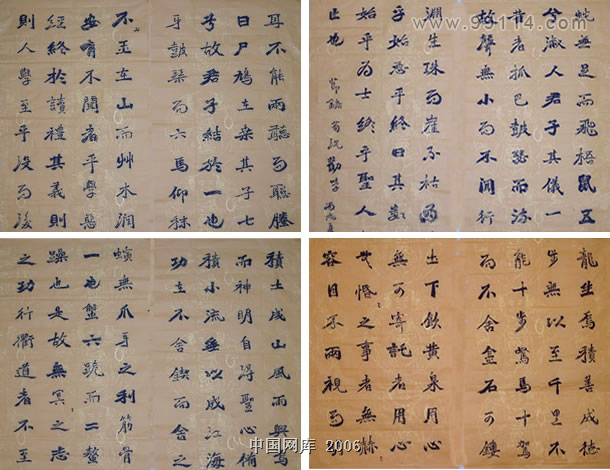 www.99114.com
耳不能兩聽而聰螣
曰尸鳩在桑其子七
兮故君子結於一也
牙鼓琴而六馬仰秣
不玉在山而艸木潤
安有不聞者乎學惡
經終於讀禮其義則
則人學至乎沒而後
蛇無足而飛梧鼠五
兮淑人君子其儀一
昔者瓠巴鼓瑟而流
故聲無小而不聞行
淵生珠而崖不枯為
乎始惡乎終曰其數
始乎為士終乎聖人
止也
節錄荀況勸學
積土成山風雨興焉
而神明自得聖心備
積小流無以成江海
功在不舍鍥而舍之
螾無爪牙之利筋骨
一也蟹六跪而二螯
躁也是故無冥之志
之功行衢道者不至
龍生焉積善成德
步無以至千里不
能十步駑馬十駕
而不舍金石可鏤
土下飲黃泉用心
無可寄託者用心
惛之事者無赫
容目不兩視而
中国网库 2006